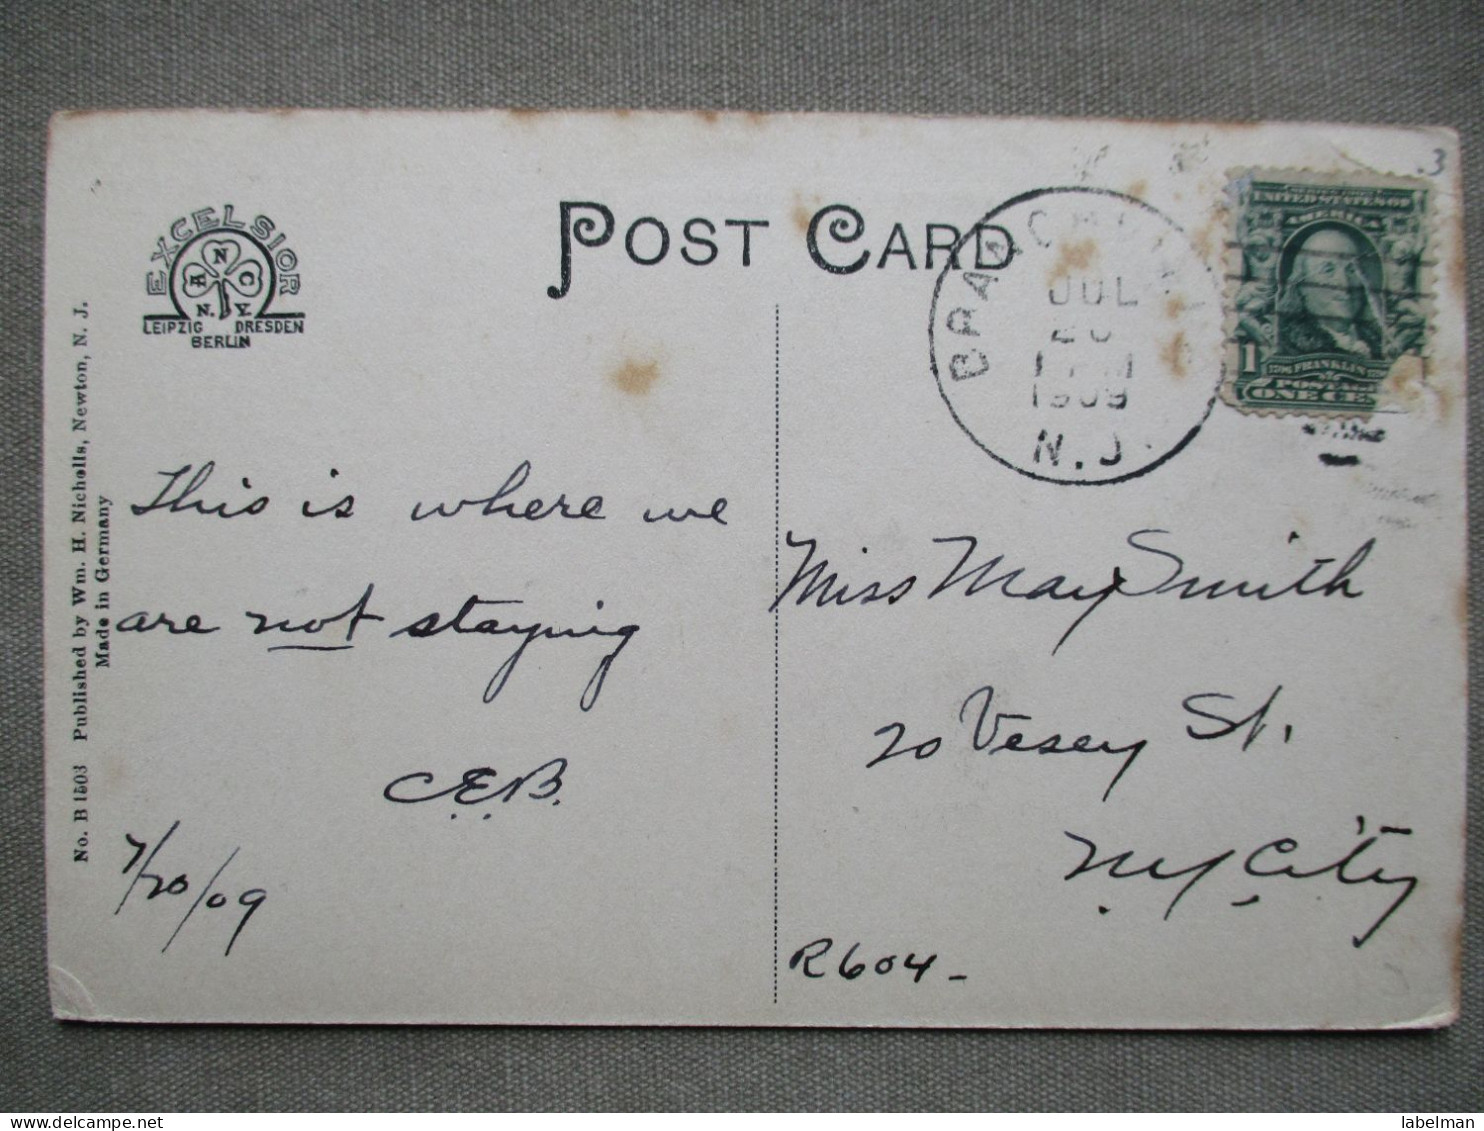 EXCELSIOR
A N C
N. Y.
LEIPZIG DRESDEN
BERLIN
POST CARD
BRANCHVILLE
JUL
20
1909
N.J.
UNITED STATES OF
AMERICA
1
FRANKLIN
POSTAGE
ONE CE
3
No. B 1503 Published by Wm. H. Nicholls, Newton, N. J.
Made in Germany
This is where we
are not staying
C.E.B.
7/20/09
Miss May Smith
20 Vesey St.
N.Y. City
R604-
labelman
www.delcampe.net